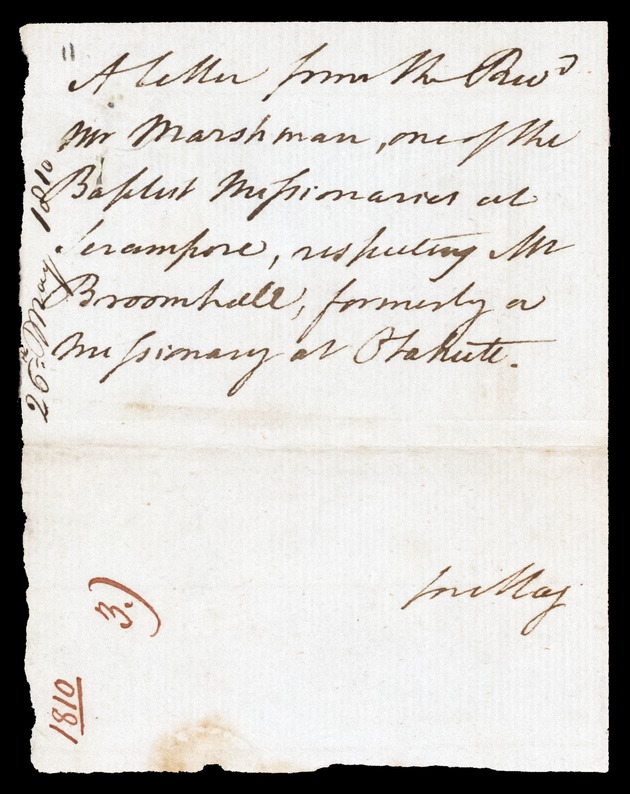 "
A letter from the Revd
Mr Marshman, one of the
Baptist Missionaries at
Serampore, respecting Mr
Broomhall, formerly a
Missionary at Otaheite.
26th May 1810
3.)
1810